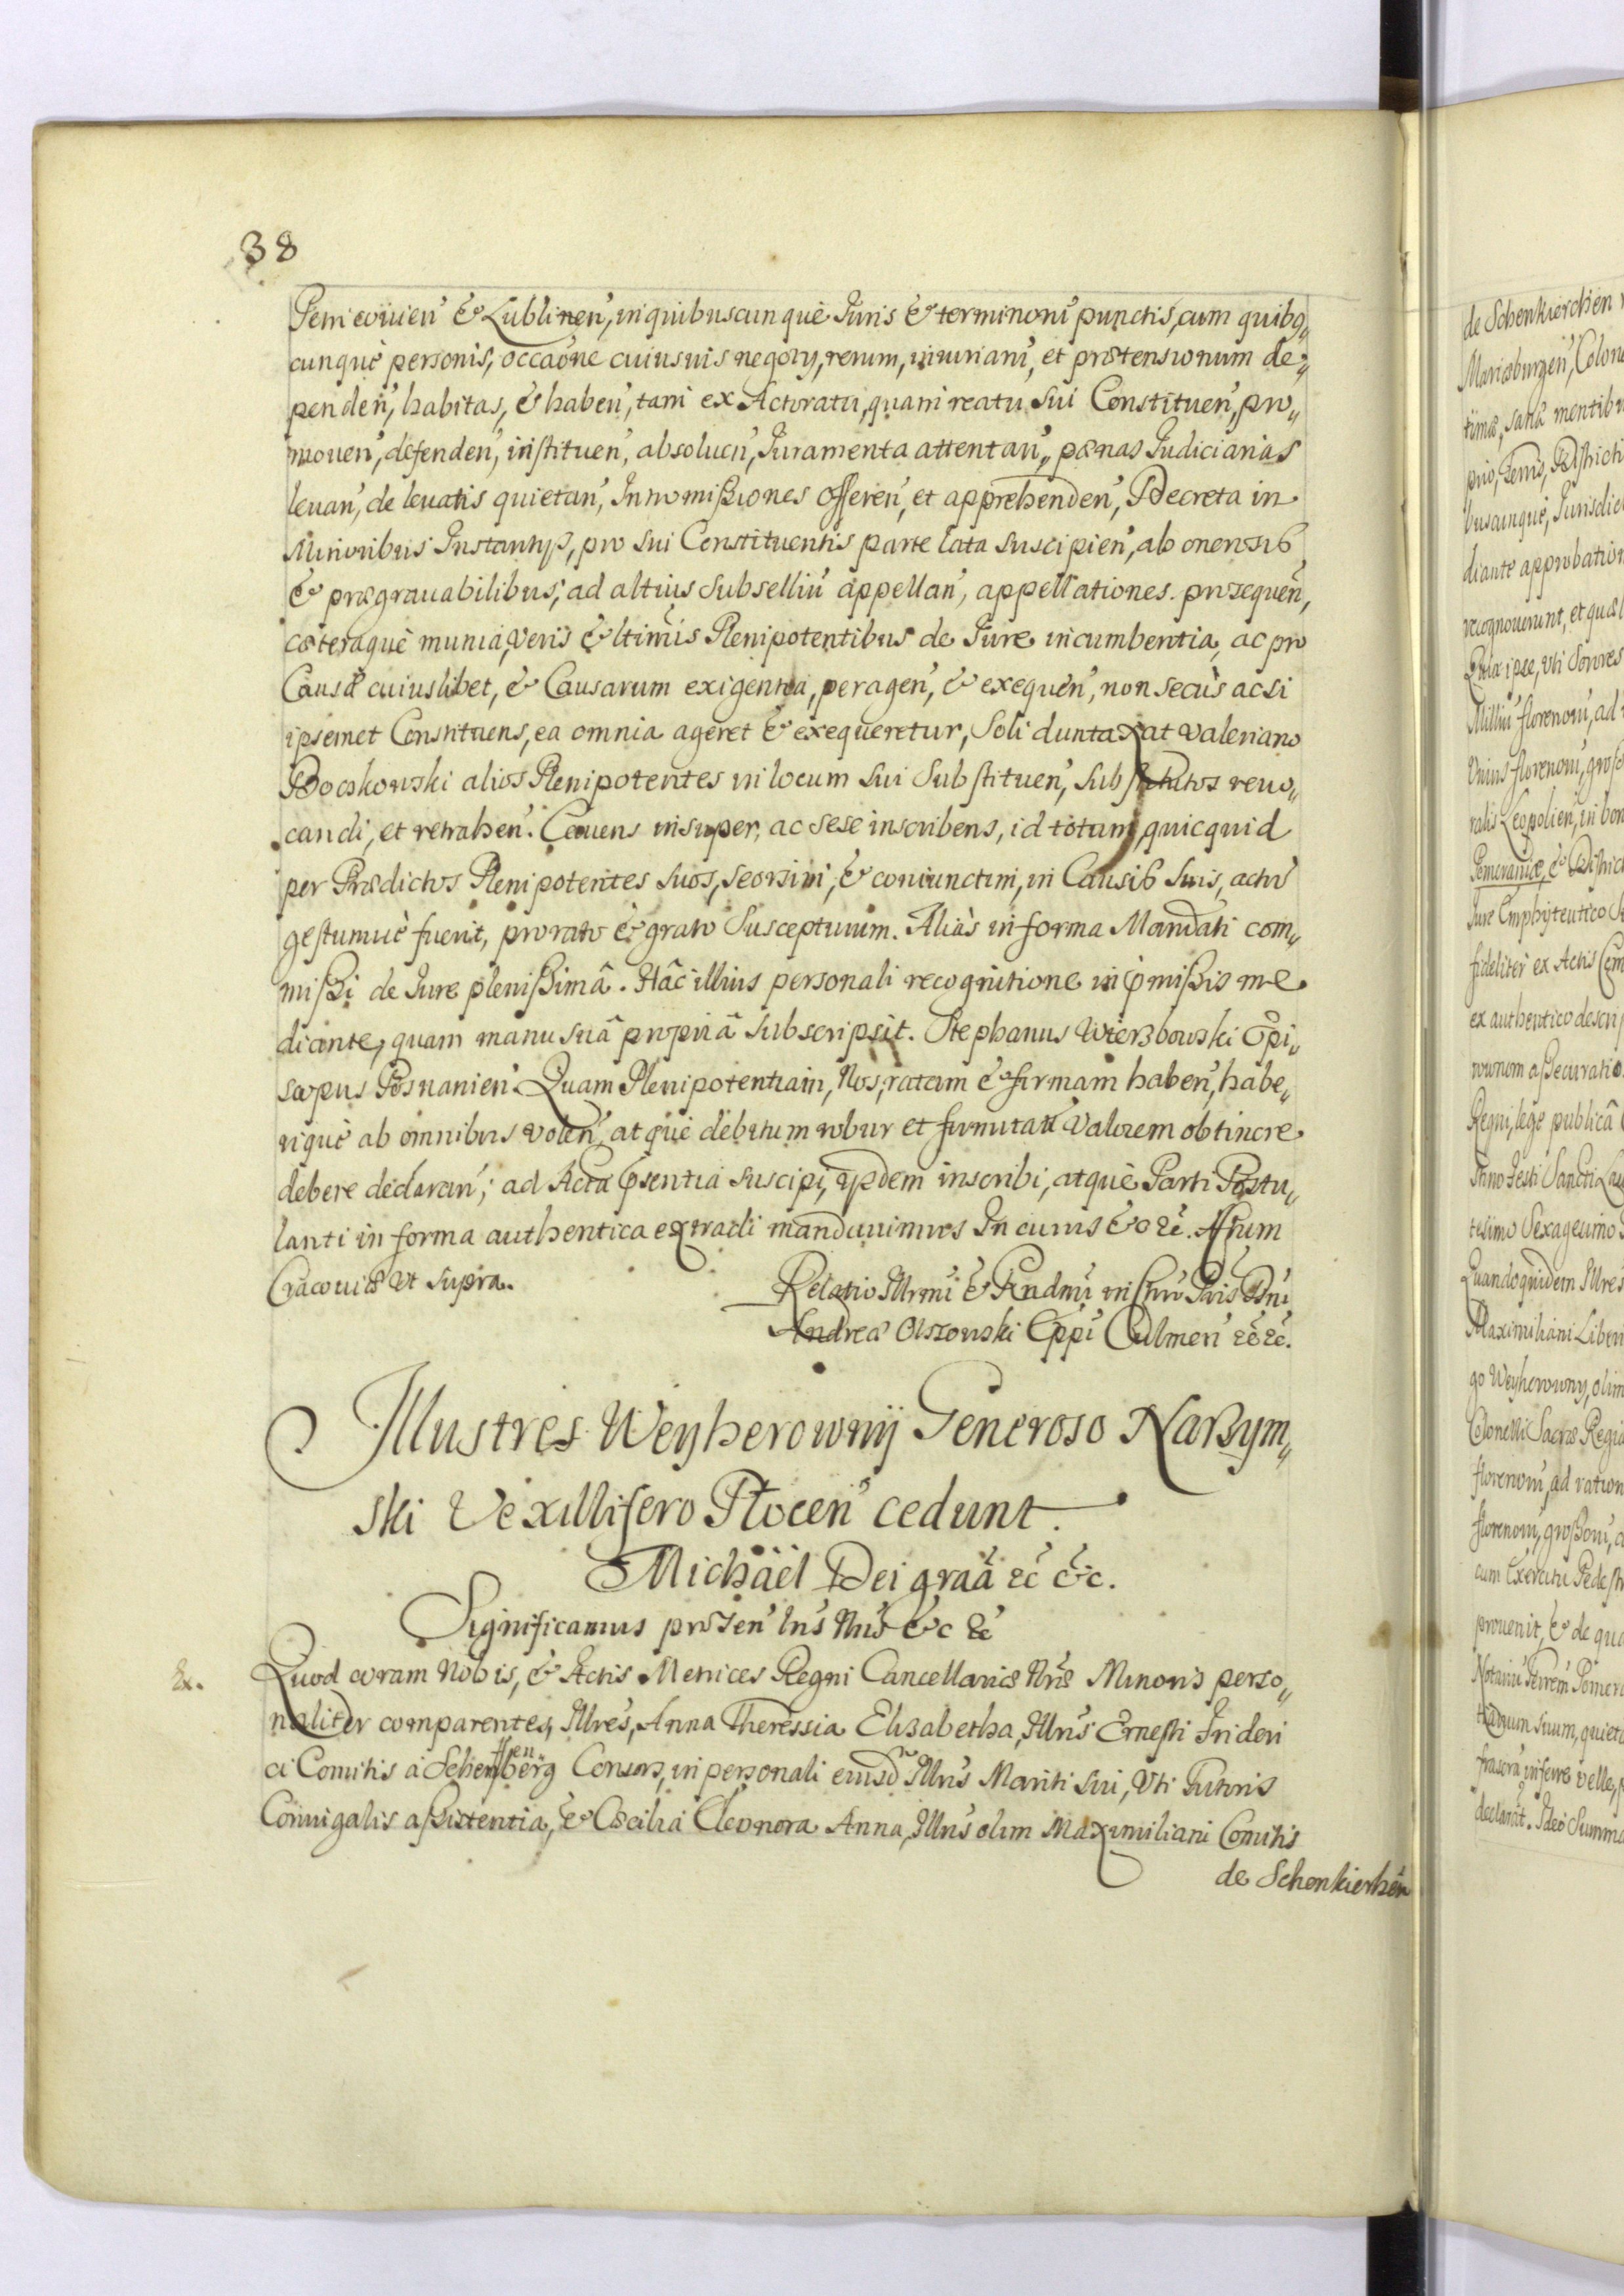 38
Petricovien̄ & Lublinen̄, in quibuscunque Juris & terminorū punctis, cum quibq̢„
cunque personis, occaōne cuiusuis negoty, rerum, iniuriarū, et prætensionum de„
penden̄, habitas, & haben̄, tam ex Actoratu, quam reatu sui Constituen̄, pro„
mouen̄, defenden̄, instituen̄, absoluen̄, Juramenta attentan̄, pænas Judiciarias
leuan̄, de leuatis quietan̄, Intromißiones Offeren̄, et apprehenden̄, Decreta in
Minoribus Instantijs, pro sui Constituentis parte lata suscipien̄, ab onerosib
& prægrauabilibus, ad altius Subselliū appellan̄, appellationes prosequen̄,
cæteraque munia, veris & ltimis Plenipotentibus de Jure incumbentia, ac pro
Causæ cuiuslibet, & Causarum exigentia, peragen̄, & exequen̄, non secus acsi
ipsemet Constituens, ea omnia ageret & exequeretur, Soli duntaxat Valeriano
Boczkowski alios Plenipotentes in locum sui Substituen̄, substitutos reuo„
candi, et retrahen̄. Cauens insuper, ac sese inscribens, id totum, quicquid
per Prædictos Plenipotentes suos, seorsim, & coniunctim, in Causib suis, actū
gestumue fuerit, pro rato & grato Suscepturum. Aliàs in forma Mandati com„
mißi de Jure plenißimâ. Hâc illius personali recognitione in p̄mißis me
diante, quam manu suâ propriâ subscripsit. Stephanus Wierzbowski Epi„
scopus Posnanien̄. Quam Plenipotentiam, Nos, ratam & firmam haben̄, habe„
rique ab omnibus volen̄, atque debitum robur et firmitatis Valorem obtinere
debere declaran̄; ad Acta p̄sentia suscipi, ijsdem inscribi, atque Parti Postu„
lanti in forma authentica extradi mandauimus In cuius &c ec̄. Actum
Cracouiæ Vt supra.
Relatio Illrmi & Rndmi in Chro Pris Dni
Andreæ Olszowski Eppi Culmen̄ ec̄ ec̄.
Illustres Weyherowny Generoso Narzym„
ski Vexillifero Plocen̄ cedunt.
Michaël Dei graā ec̄ &c.
Significamus præsen̄ lris Nris &c ec̄
Ex.
Quod coram Nobis, & Actis Metrices Regni Cancellariæ Nræ Minoris perso„
naliter comparentes, Illres, Anna Theressia Elisabetha, Illris Ernesti Frideri
ci Comitis à Scherffenberg Consors, in personali eiusd Illris Mariti sui, Vti Tutoris
Coniugalis aßistentia, & Cæcilia Eleonora Anna, Illris olim Maximiliani Comitis
de Schonkierhen
de Schenkierchen
Mariæburgen̄, Colon
timæ, sana mentibu
prio, Terris, Districti
busunque, Jurisdic
diante approbation
recognouerunt, et quæl
Quia ipsæ, vti Sorores
Milliū florenorū, ad
Vnius florenorū, groß
ralis Leopolien̄, in bon
Pomeraniæ, & Distric
Jure Emphyteutico
fideliter ex Actis
ex authentico descrip
rownom aßecuratio
Regni, lege publicâ
Anno Festi Sancti Lau
tesimo Sexagesimo
Quandoquidem Illres
Maximiliani Liberi
go Weyherowny, olim
Colonelli Sacræ Regiæ
florenorū, ad ration
florenorū, großorū, a
cum Exercitu Pedestr
prouenit, & de quo
Notariū Terrem Pomera
suum, quieta
inferre velle,
declarat. Ideo Summa